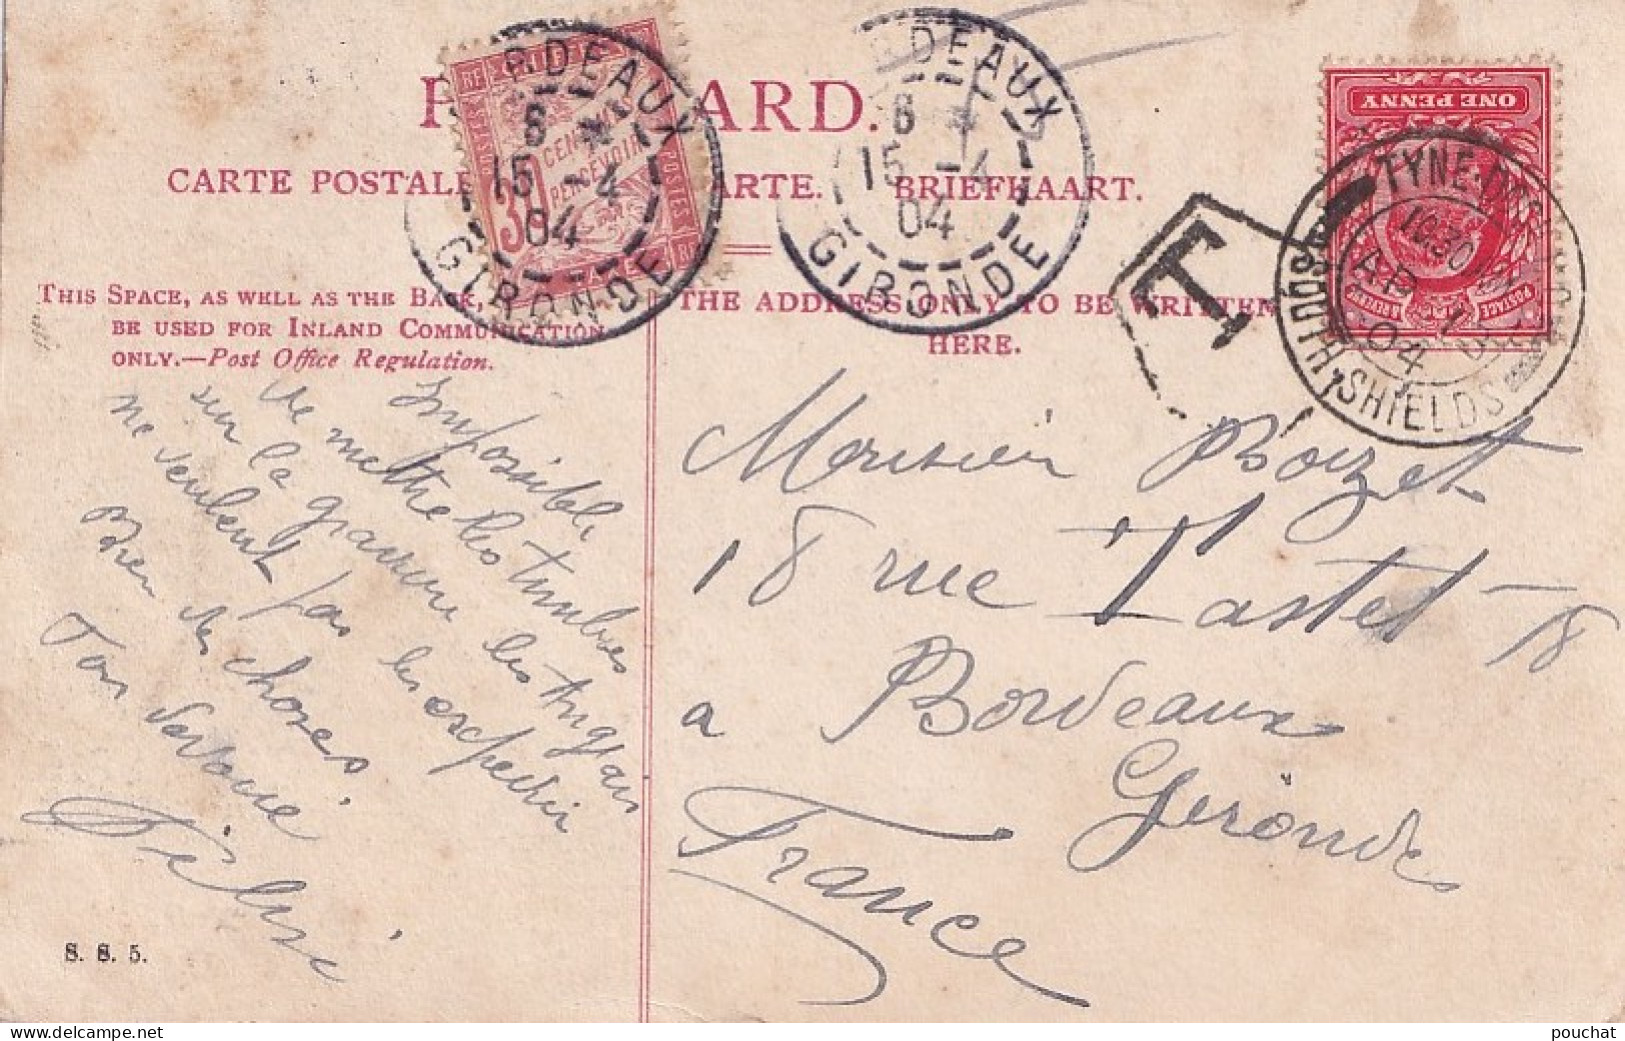 POST CARD.
CARTE POSTALE
KARTE. BRIEFKAART.
THIS SPACE, AS WELL AS THE BACK,
BE USED FOR INLAND COMMUNICATION
ONLY.—Post Office Regulation.
THE ADDRESS ONLY TO BE WRITTEN
HERE.
BORDEAUX
6
15 -4
04
GIRONDE
30
CENTIMES
PERCEVOIR
POSTES
BORDEAUX
6
15 -4
04
GIRONDE
T
ONE PENNY
POSTAGE
REVENUE
TYNE-DOCK
10.30
AP
04
SOUTH.SHIELDS
Impossible
de mettre les timbres
sur la gravure les Anglais
ne veulent pas les expedier
Bien des choses
Ton dévoué
Monsieur Boizet
18 rue Castet 18
a Bordeaux
Gironde
France
S. S. 5.
pouchat